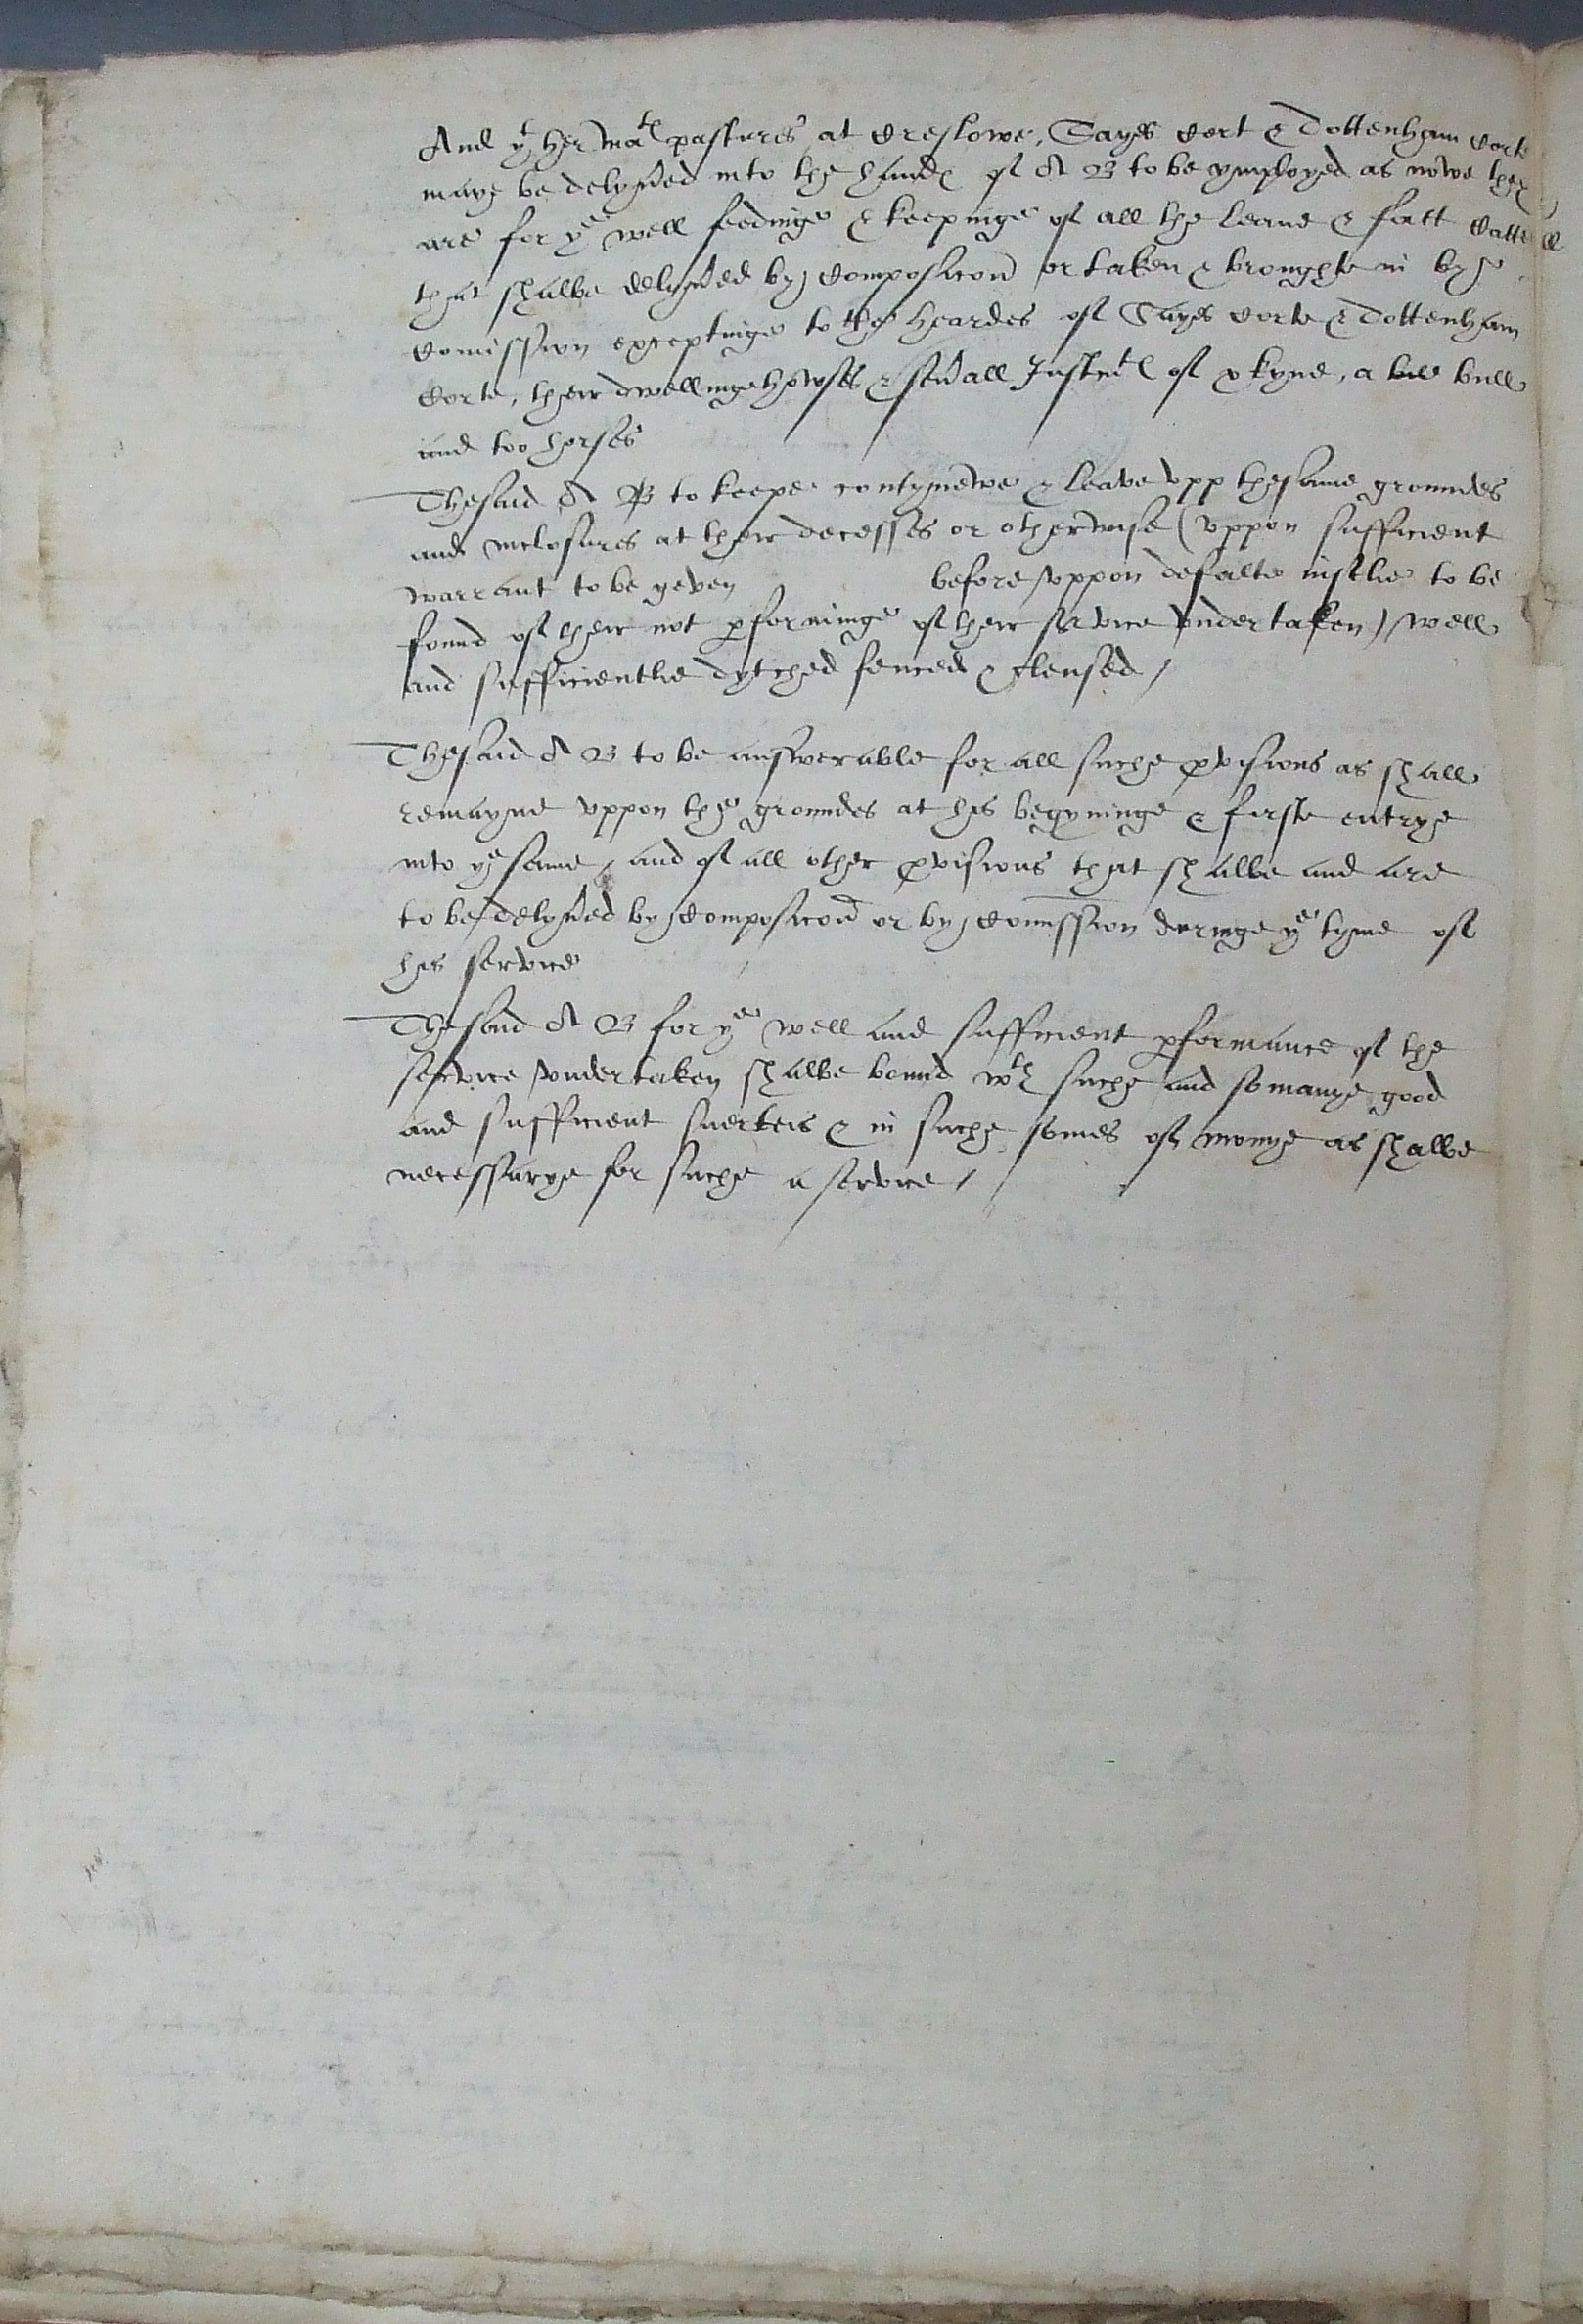 And yt her Matꝭ pastures at Creslowe, Sayes Cort & Tottenham Corte
maye be delyũed into the handꝭ of A B to be ymployed as nowe they
are for ye well feedinge & keepinge of all the leane & fatt Cattell
that shalbe delyũed by Composicon̄ or taken & broughte in by
Comission exceptinge to the heardes of Sayes Corte & Tottenham
Corte, their dwellinge howses & seũall of x kyne, a bull
and too horses
The said A B to keepe contynewe & leave upp the same groundes
and inclosures at their decesses or otherwise (uppon sufficient
warrant to be geven before uppon defalte iustlie to be
found of their not ꝑforminge of their service undertaken) well
and sufficientlie dytched fenced & clensed /
The said A B to be answerable for all suche ꝓvisions as shall
remayne uppon the groundes at his begyninge & firste entrye
into ye same, and of all other ꝓvisions that shalbe and are
to be delyũed by Composicon̄ or by Comission duringe ye tyme of
his service
The said A B for ye well and sufficient ꝑformance of the
service undertaken shalbe bound wth suche and so manye good
and sufficient suerteis & in suche somes of monye as shalbe
necessarye for suche a service /